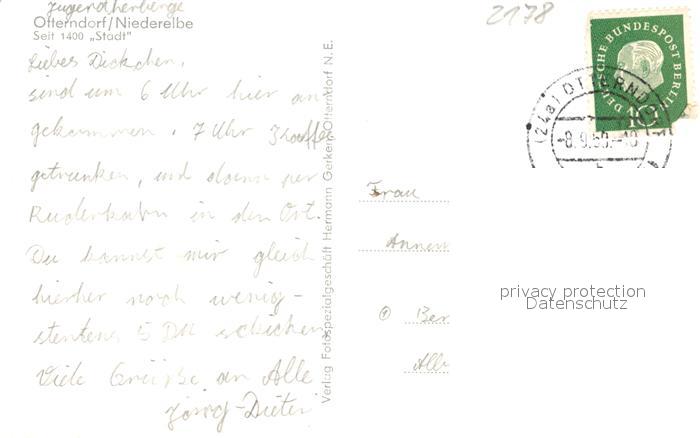 Jugendherberge
Otterndorf/Niederelbe
Seit 1400 „Stadt"
Liebes Dickchen,
sind um 6 Uhr hier an
gekommen. 7 Uhr Kaffee
getrunken, und dann per
Ruderkahn in den Ort.
Du kannst mir gleich
hierher noch wenig-
stens 5 DM schicken
Viele Grüße an Alle
Jörg-Dieter
Verlag Fotospezialgeschäft Hermann Gerken, Otterndorf N.E.
2178
DEUTSCHE BUNDESPOST BERLIN
10
(24a) OTTERNDO
-8.9.60.-18
Frau
Annem
Ber
Alb
privacy protection
Datenschutz